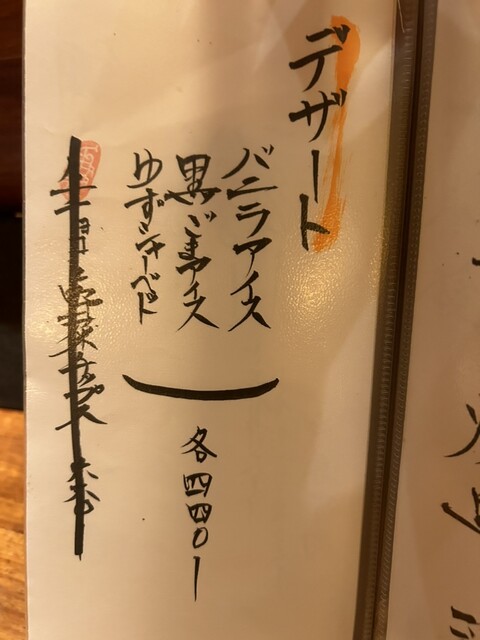 デザート
バニラアイス
黒ごまアイス
ゆずシャーベット
各四四〇ー